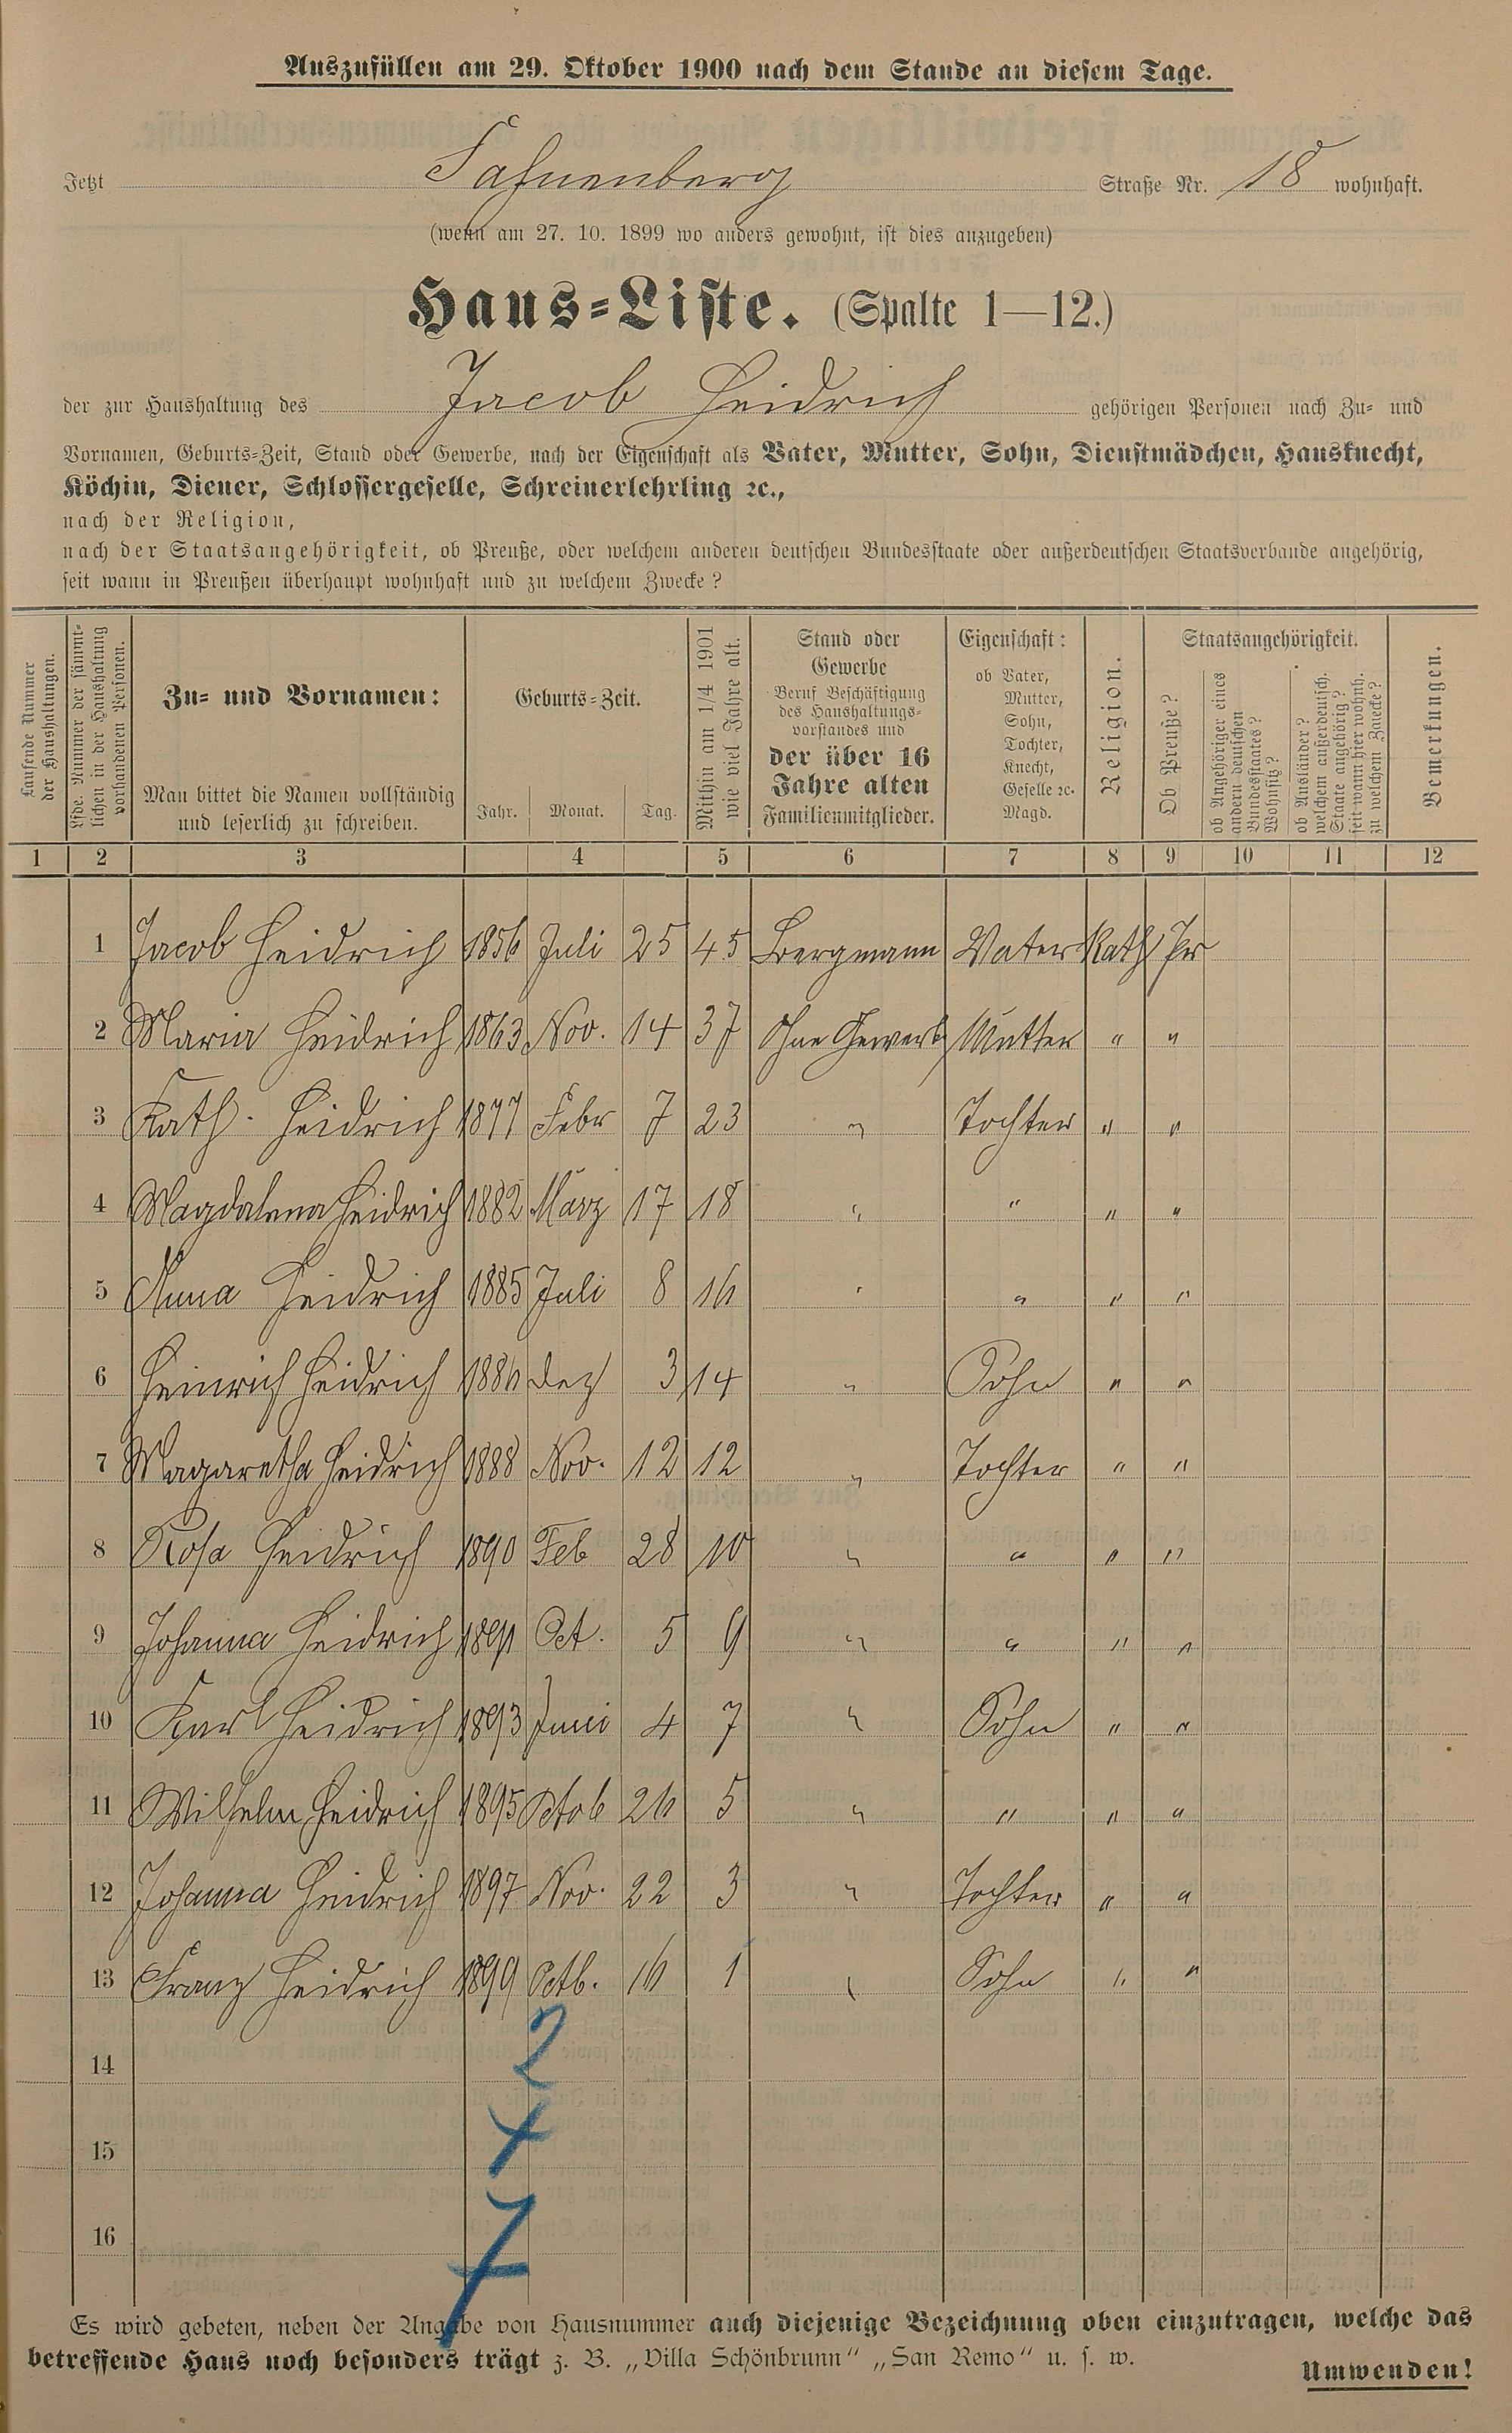 Auszufüllen am 29. Oktober 1900 nach dem Stande an diesem Tage.
Jetzt Fahnenberg Straße Nr. 18 wohnhaft.
(wenn am 27. 10. 1899 wo anders gewohnt, ist dies anzugeben)
Haus-Liste. (Spalte 1—12.)
der zur Haushaltung des Jacob Heidrich gehörigen Personen nach Zu- und
Vornamen, Geburts-Zeit, Stand oder Gewerbe, nach der Eigenschaft als Vater, Mutter, Sohn, Dienstmädchen, Hausknecht,
Köchin, Diener, Schlossergeselle, Schreinerlehrling ꝛc.,
nach der Religion,
nach der Staatsangehörigkeit, ob Preuße, oder welchem anderen deutschen Bundesstaate oder außerdeutschen Staatsverbande angehörig,
seit wann in Preußen überhaupt wohnhaft und zu welchem Zwecke?
Laufende Nummer
der Haushaltungen.
Lfde. Nummer der sämmt-
lichen in der Haushaltung
vorhandenen Personen.
Zu- und Vornamen:
Man bittet die Namen vollständig
und leserlich zu schreiben.
Geburts-Zeit.
Jahr. Monat. Tag.
Mithin am 1/4 1901
wie viel Jahre alt.
Stand oder
Gewerbe
Beruf Beschäftigung
des Haushaltungs-
vorstandes und
der über 16
Jahre alten
Familienmitglieder.
Eigenschaft:
ob Vater,
Mutter,
Sohn,
Tochter,
Knecht,
Geselle ꝛc.
Magd.
Religion.
Staatsangehörigkeit.
Ob Preuße?
ob Angehöriger eines
andern deutschen
Bundesstaates?
Wohnsitz?
ob Ausländer?
welchem außerdeutsch.
Staate angehörig?
seit wann hier wohnh.
zu welchem Zwecke?
Bemerkungen.
1 2 3 4 5 6 7 8 9 10 11 12
1 Jacob Heidrich 1856 Juli 25 45 Bergmann Vater Kath Pr
2 Maria Heidrich 1863 Nov. 14 37 Ohne Gewerb Mutter " "
3 Kath. Heidrich 1877 Febr 7 23 " Tochter " "
4 Magdalena Heidrich 1882 März 17 18 " " " "
5 Anna Heidrich 1885 Juli 8 16 " " " "
6 Heinrich Heidrich 1886 Dez 3 14 " Sohn " "
7 Magaretha Heidrich 1888 Nov. 12 12 " Tochter " "
8 Rosa Heidrich 1890 Feb 28 10 " " " "
9 Johanna Heidrich 1891 Oct. 5 9 " " " "
10 Karl Heidrich 1893 Juni 4 7 " Sohn " "
11 Wilhelm Heidrich 1895 Oktob 26 5 " " " "
12 Johanna Heidrich 1897 Nov. 22 3 " Tochter " "
13 Franz Heidrich 1899 Octb. 16 1 " Sohn " "
14 2
15 +
16 7
Es wird gebeten, neben der Angabe von Hausnummer auch diejenige Bezeichnung oben einzutragen, welche das
betreffende Haus noch besonders trägt z. B. „Villa Schönbrunn“ „San Remo“ u. s. w.
Umwenden!